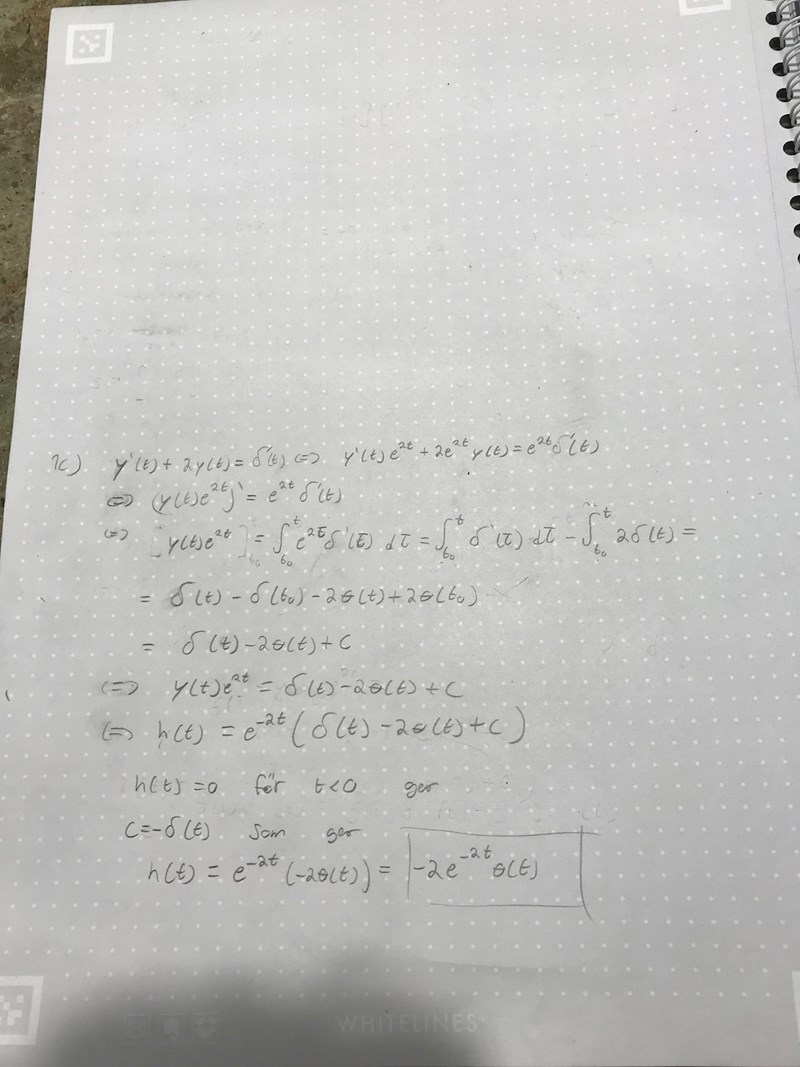 1c) y'(t) + 2y(t) = δ'(t) <=> y'(t)e^2t + 2e^2t y(t) = e^2t δ'(t)
<=> (y(t)e^2t)' = e^2t δ'(t)
<=> [y(t)e^2t] = ∫_t0^t e^2τ δ'(τ) dτ = ∫_t0^t δ'(τ) dτ - ∫_t0^t 2δ(t) =
= δ(t) - δ(t0) - 2θ(t) + 2θ(t0)
= δ(t) - 2θ(t) + C
<=> y(t)e^2t = δ(t) - 2θ(t) + C
<=> h(t) = e^-2t (δ(t) - 2θ(t) + C)
h(t) = 0 för t<0 ger
C = -δ(t) som ger
h(t) = e^-2t (-2θ(t)) = -2e^-2t θ(t)
WHITELINES